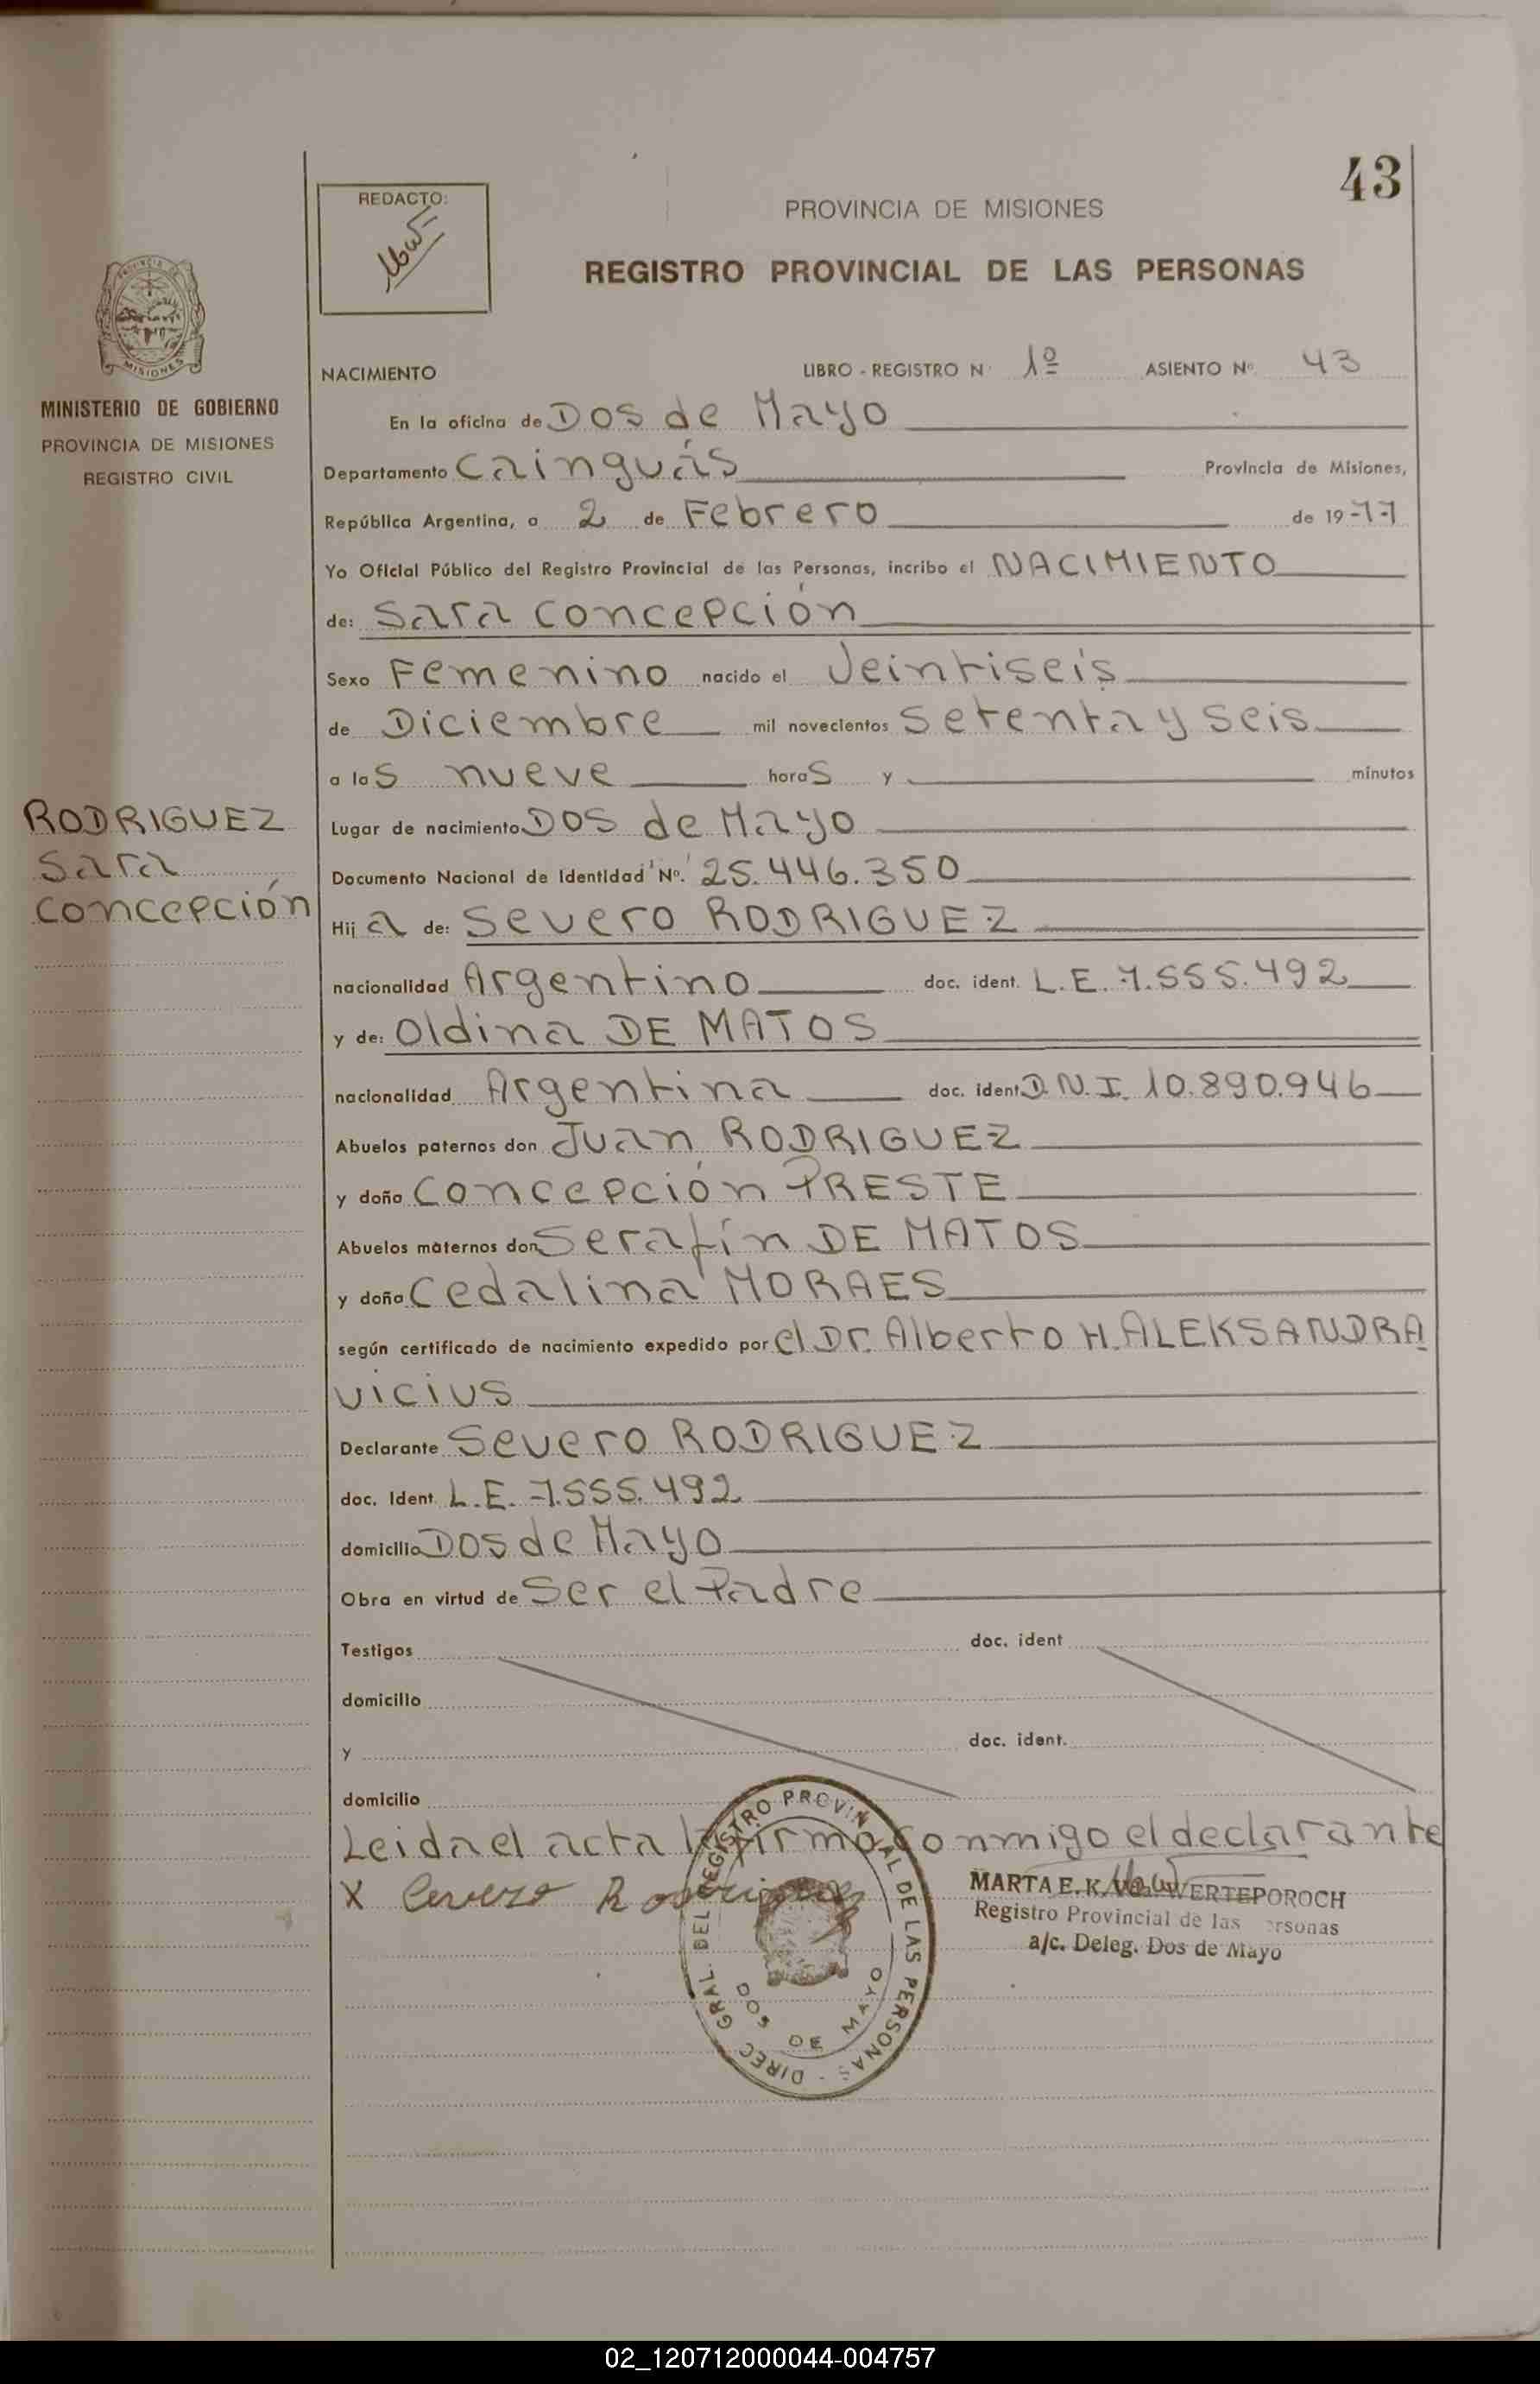 43
REDACTO:
PROVINCIA DE MISIONES
REGISTRO PROVINCIAL DE LAS PERSONAS
PROVINCIA DE
MISIONES
MINISTERIO DE GOBIERNO
PROVINCIA DE MISIONES
REGISTRO CIVIL
NACIMIENTO LIBRO - REGISTRO N 1º ASIENTO Nº 43
En la oficina de Dos de Mayo
Departamento Cainguás Provincia de Misiones,
República Argentina, a 2 de Febrero de 1977
Yo Oficial Público del Registro Provincial de las Personas, incribo el NACIMIENTO
de: Sara Concepción
Sexo Femenino nacido el Veintiseis
de Diciembre mil novecientos Setenta y Seis
a las nueve horas y minutos
RODRIGUEZ
Sara
Concepción
Lugar de nacimiento Dos de Mayo
Documento Nacional de Identidad Nº. 25.446.350
Hija de: Severo RODRIGUEZ
nacionalidad Argentino doc. ident. L.E. 7.555.492
y de: Oldina DE MATOS
nacionalidad Argentina doc. ident D.N.I. 10.890.946
Abuelos paternos don Juan RODRIGUEZ
y doña Concepción PRESTE
Abuelos maternos don Serafín DE MATOS
y doña Cedalina MORAES
según certificado de nacimiento expedido por el Dr. Alberto H. ALEKSANDRA
VICIUS
Declarante Severo RODRIGUEZ
doc. Ident. L.E. 7.555.492
domicilio Dos de Mayo
Obra en virtud de Ser el Padre
Testigos doc. ident
domicilio
y doc. ident.
domicilio
Leida el acta la firmo conmigo el declarante
X Severo Rodriguez
MARTA E. K. WERTEPOROCH
Registro Provincial de las ersonas
a/c. Deleg. Dos de Mayo
DIREC GRAL. DEL REGISTRO PROVINCIAL DE LAS PERSONAS -
DOS DE MAYO
02_120712000044-004757